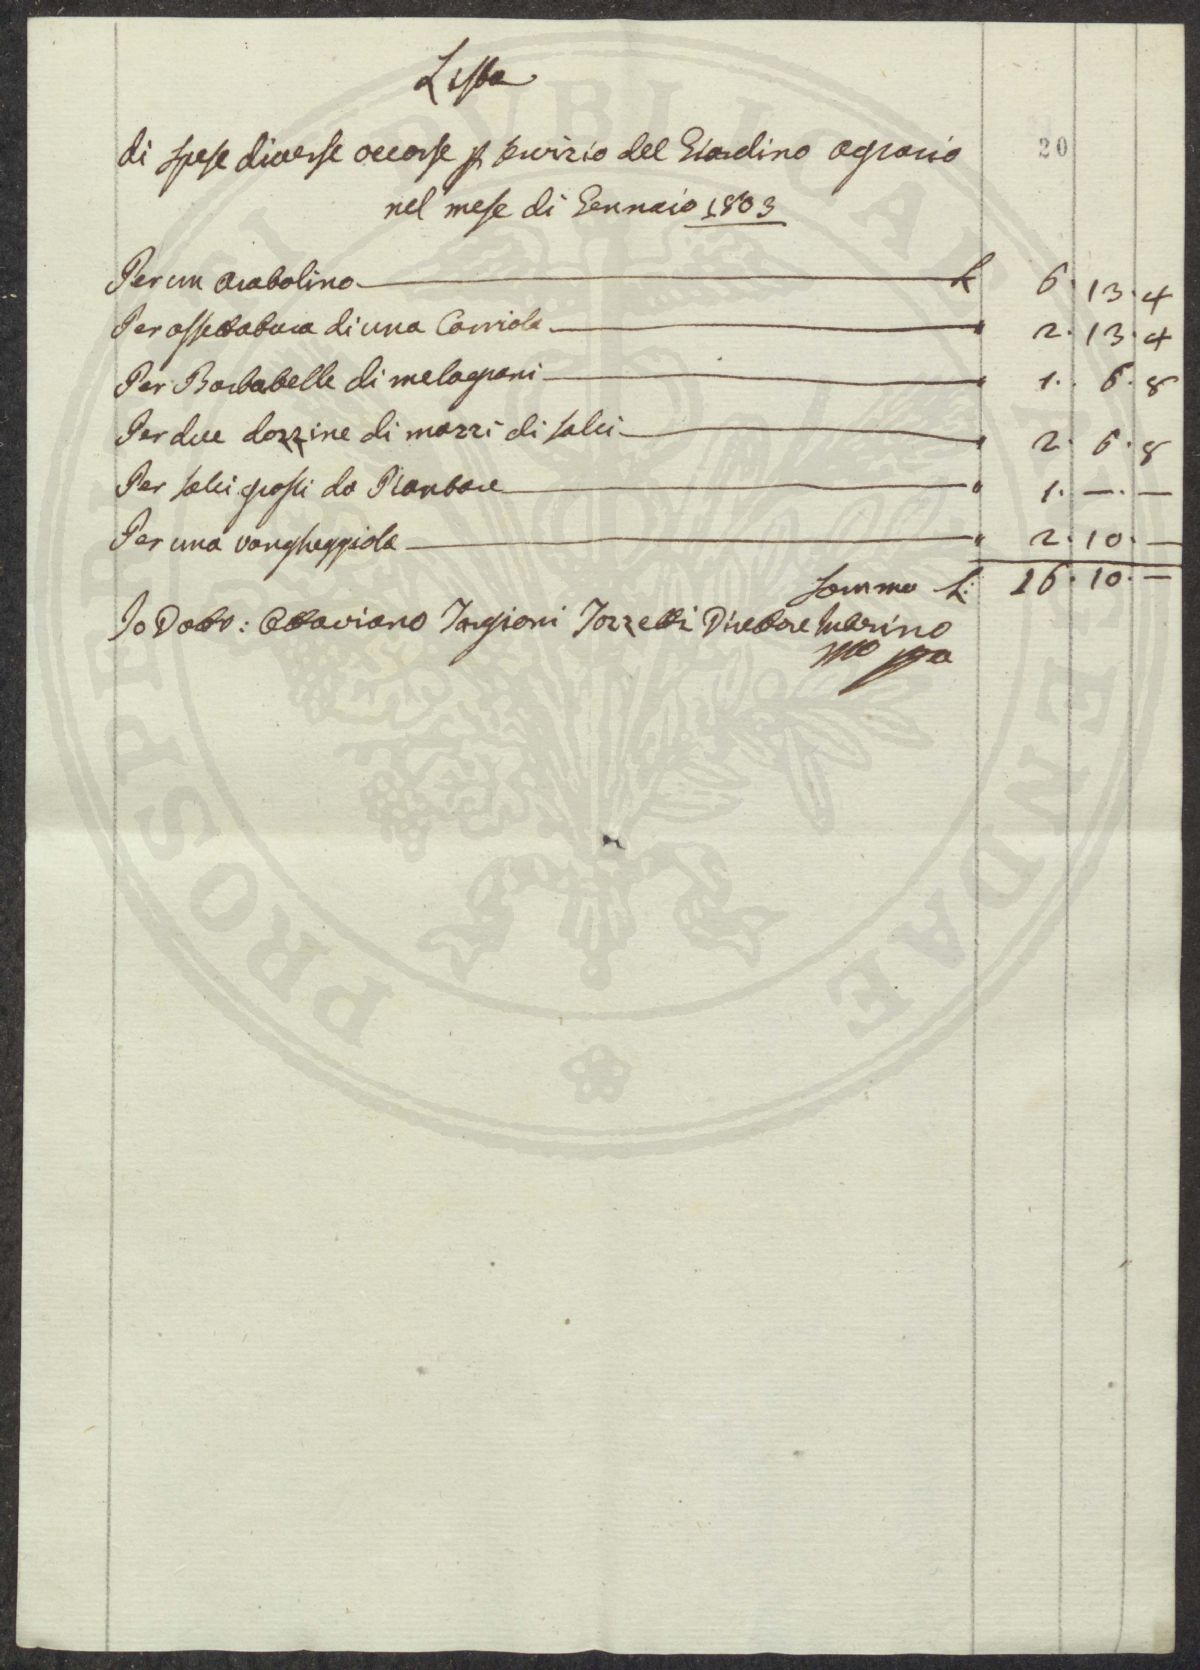 Lista
20
di spese diverse occorse p servizio del Giardino agrario
nel mese di Gennaio 1803
Per un Aratolino L 6. 13. 4
Per assettatura di una Carriola " 2. 13. 4
Per Barbatelle di melagrani " 1. 6. 8
Per due dozzine di mazzi di salci " 2. 6. 8
Per salci grossi da Piantare " 1. — . —
Per una vangheggiola " 2. 10. —
Somma L: 16. 10. —
Io Dott: Ottaviano Targioni Tozzetti Direttore Interino
mo ppa
PROSPERITATI PVBLICAE AVGENDAE